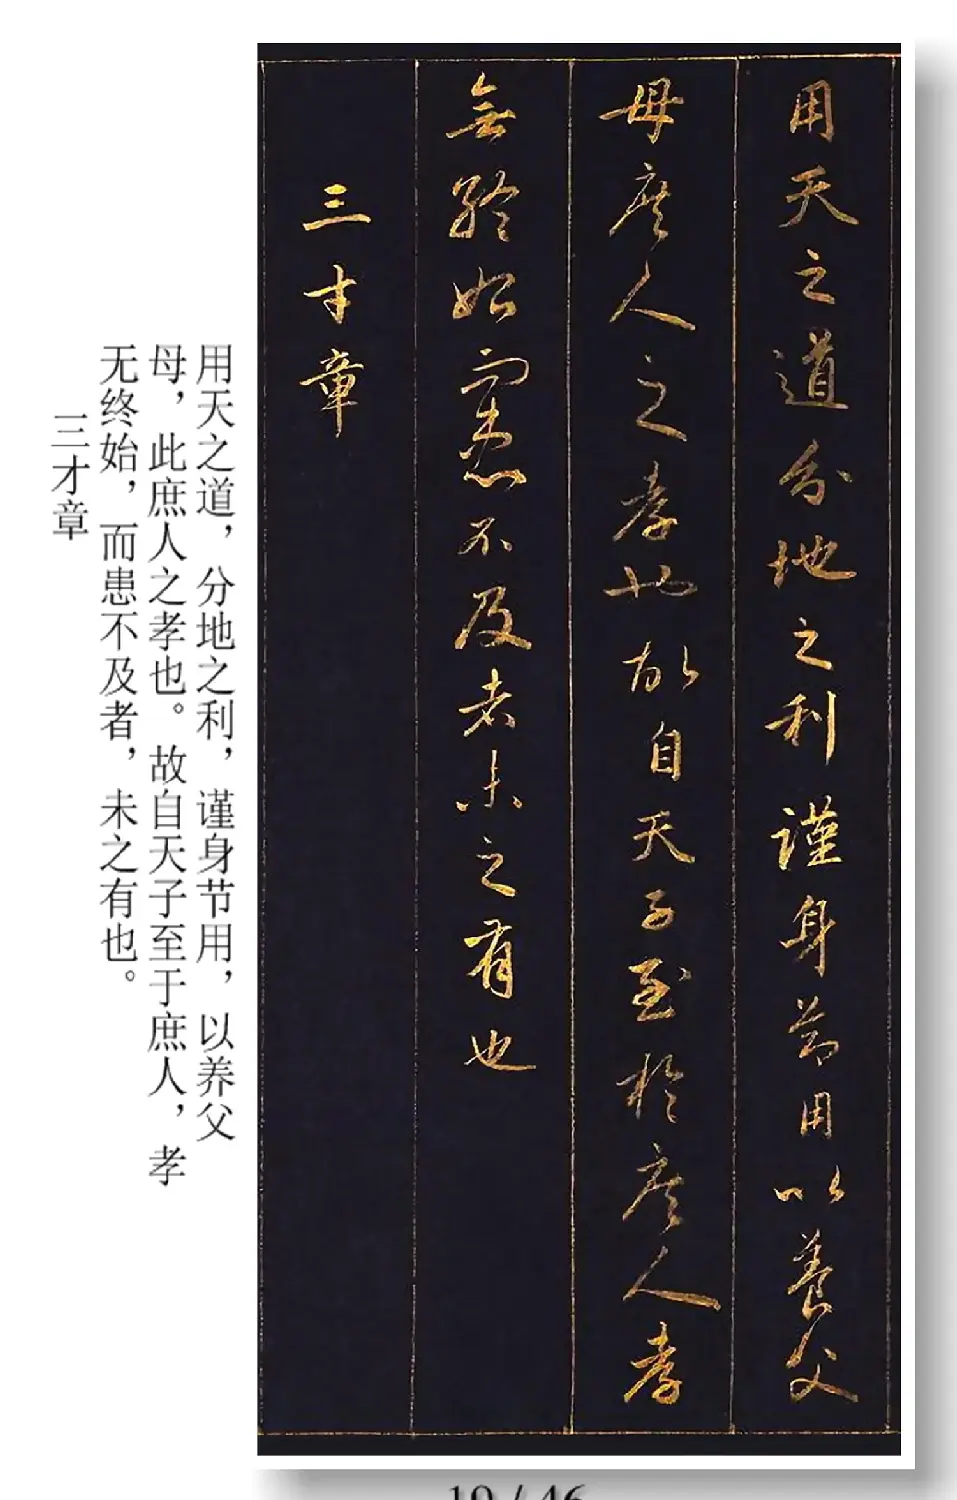 用天之道分地之利謹身節用以養父
母庶人之孝也故自天子至於庶人孝
無終始而患不及者未之有也
三才章
用天之道，分地之利，谨身节用，以养父
母，此庶人之孝也。故自天子至于庶人，孝
无终始，而患不及者，未之有也。
三才章